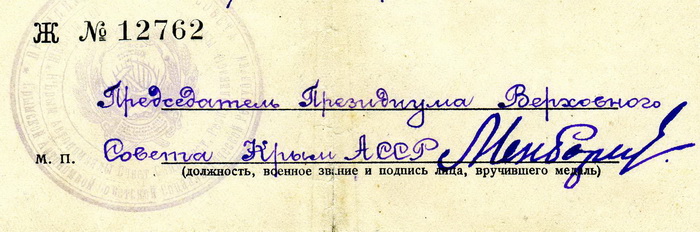 Ж № 12762
Председатель Президиума Верховного
М. П. Совета Крым АССР Менбариев
(должность, военное звание и подпись лица, вручившего медаль)